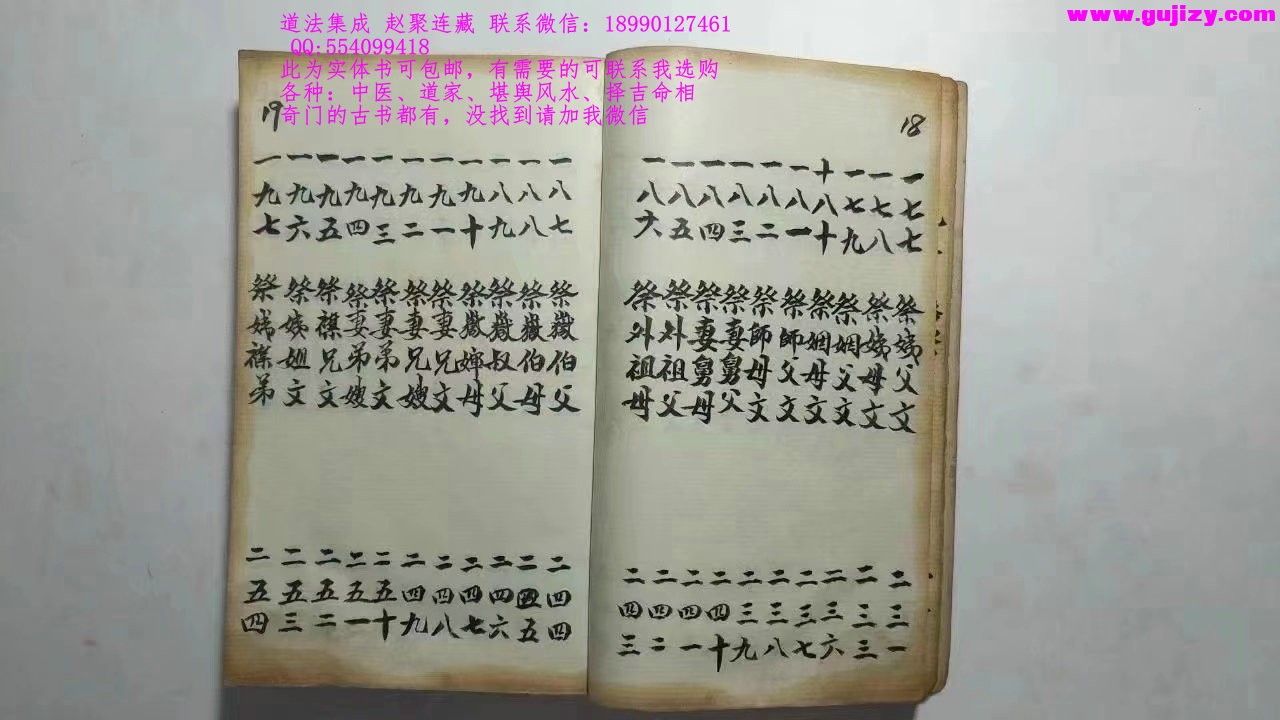 www.gujizy.com
道法集成 赵聚连藏 联系微信：18990127461
QQ:554099418
此为实体书可包邮，有需要的可联系我选购
各种：中医、道家、堪舆风水、择吉命相
奇门的古书都有，没找到请加我微信
18
一七七 祭姨父文 二三一
一七八 祭姨母文 二三三
一七九 祭姻父文 二三六
十八十 祭姻母文 二三七
一八一 祭師父文 二三八
一八二 祭師母文 二三九
一八三 祭妻舅父 二四十
一八四 祭妻舅母 二四一
一八五 祭外祖父 二四二
一八六 祭外祖母 二四三
19
一八七 祭嶽伯父 二四四
一八八 祭嶽伯母 二四五
一八九 祭嶽叔父 二四六
一九十 祭嶽嬸母 二四七
一九一 祭妻兄文 二四八
一九二 祭妻兄嫂 二四九
一九三 祭妻弟文 二五十
一九四 祭妻弟嫂 二五一
一九五 祭襟兄文 二五二
一九六 祭姨姐文 二五三
一九七 祭姨襟弟 二五四